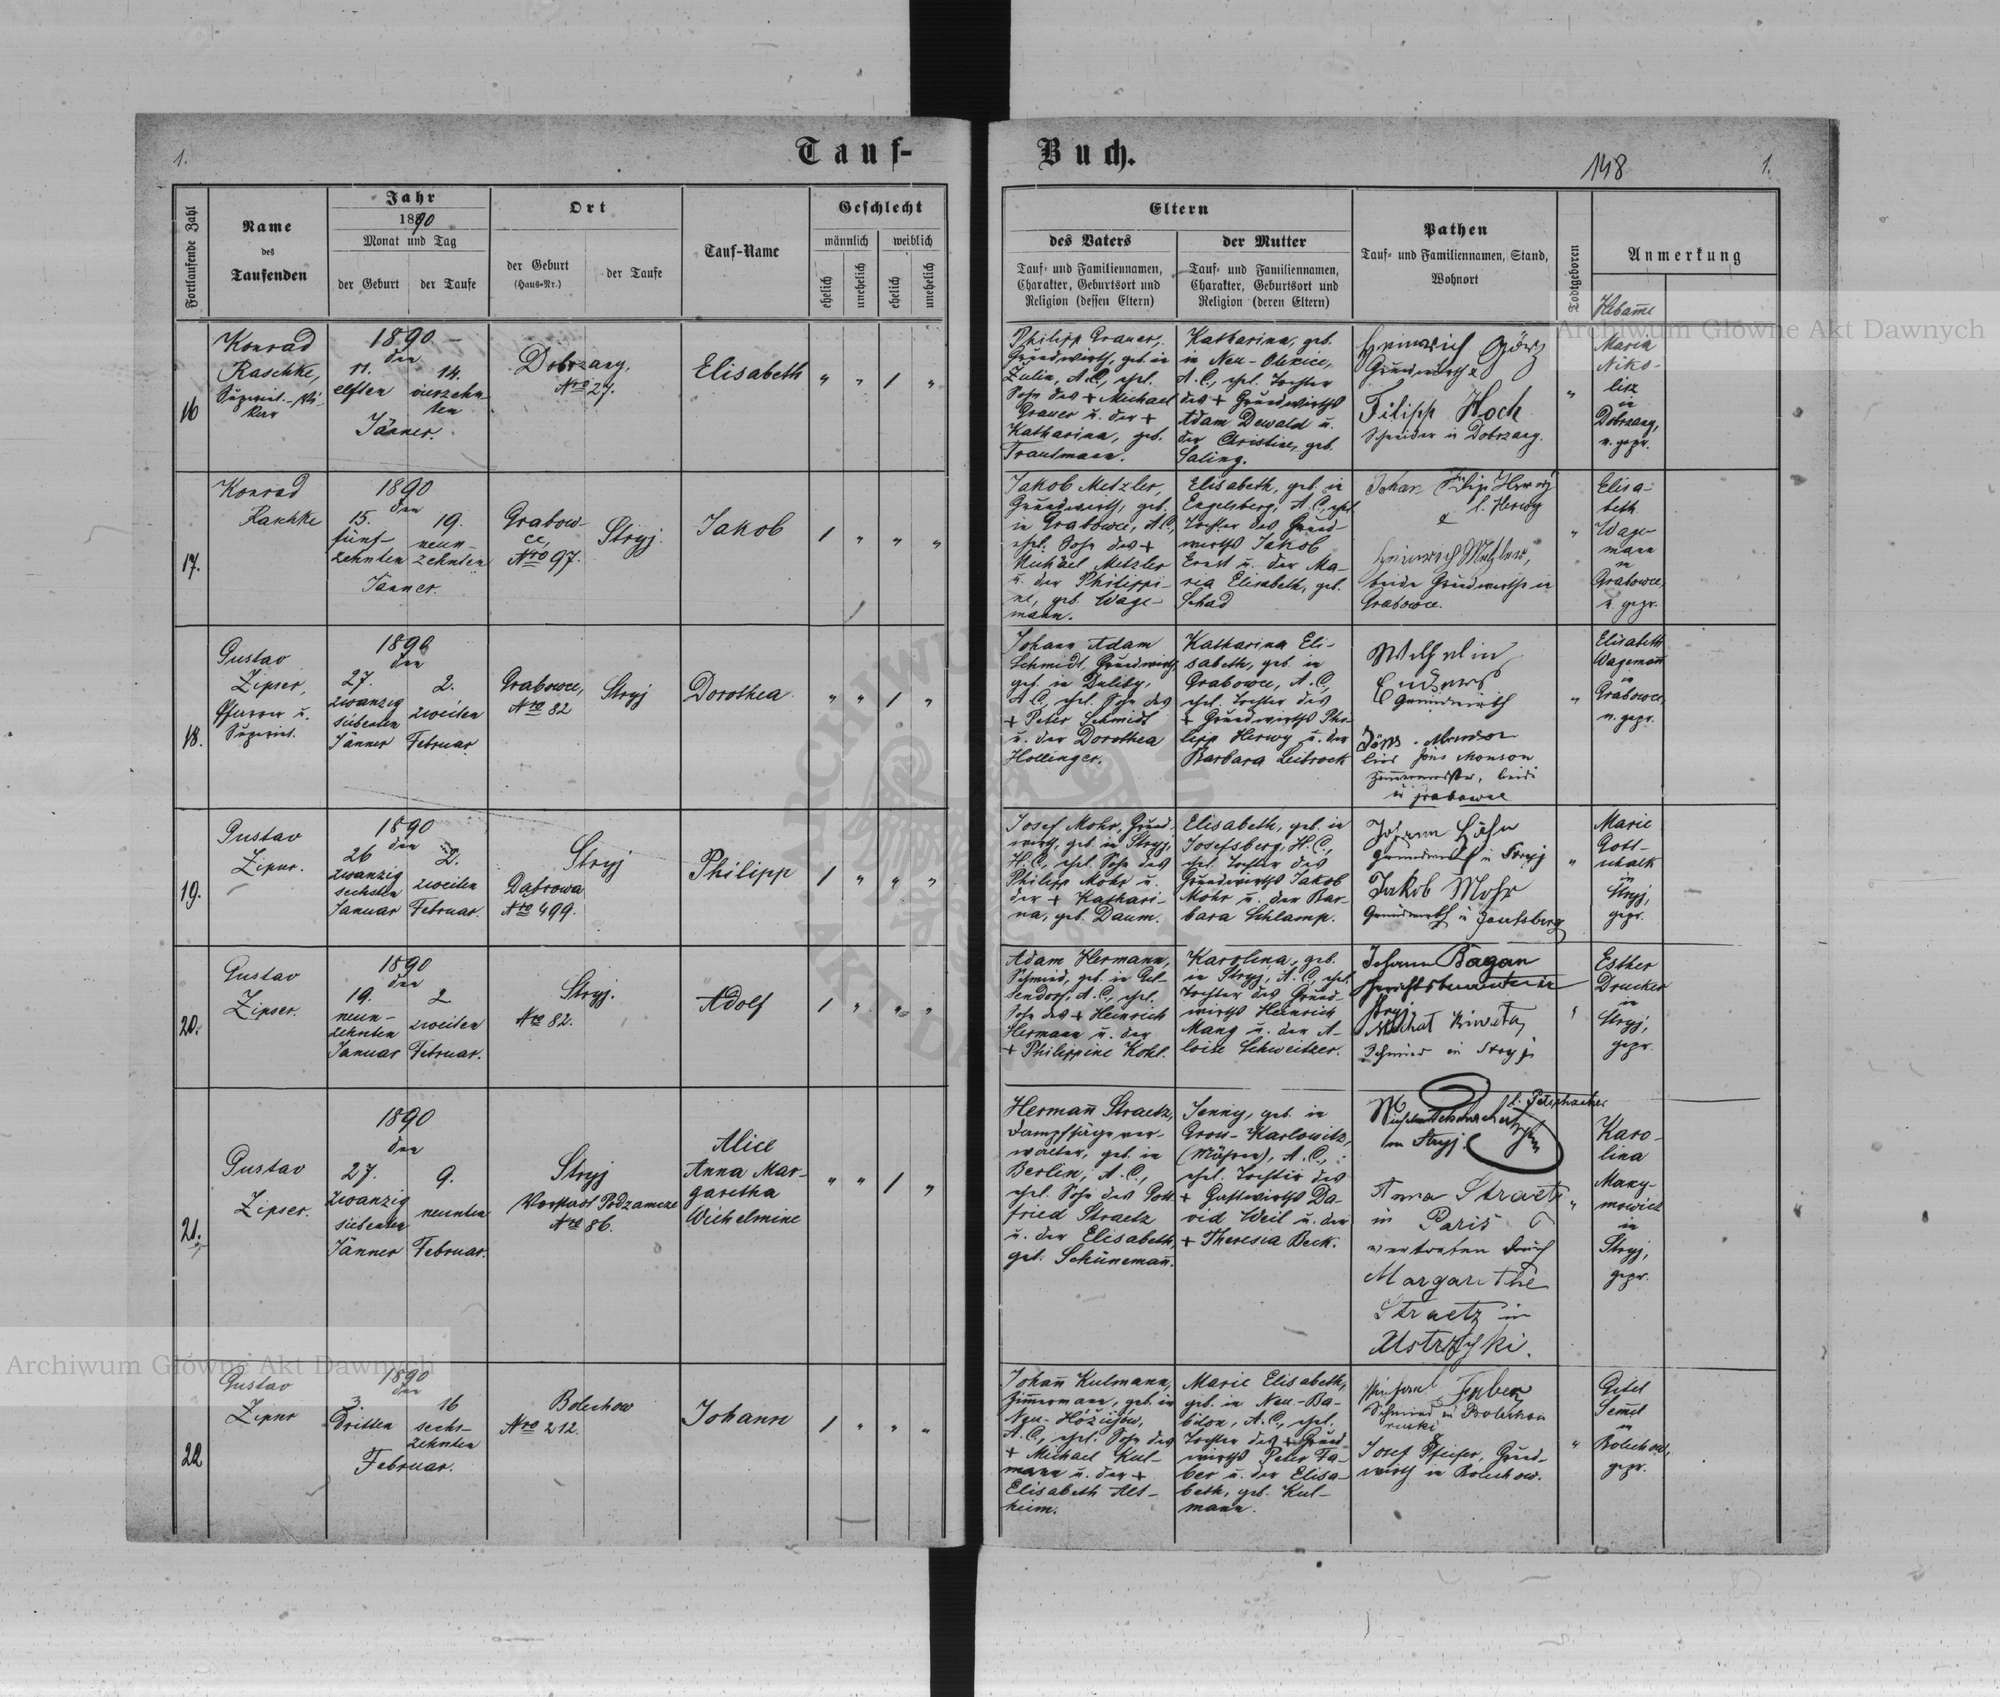 1.
Tauf-
Buch.
148
1.
Fortlaufende Zahl
Name
des
Taufenden
Jahr
1890
Monat und Tag
der Geburt
der Taufe
Ort
der Geburt
(Haus-Nr.)
der Taufe
Tauf-Name
Geschlecht
männlich
weiblich
ehelich
unehelich
ehelich
unehelich
Eltern
des Vaters
Tauf- und Familiennamen,
Charakter, Geburtsort und
Religion (dessen Eltern)
der Mutter
Tauf- und Familiennamen,
Charakter, Geburtsort und
Religion (deren Eltern)
Pathen
Tauf- und Familiennamen, Stand,
Wohnort
Todtgeboren
Anmerkung
Hebame
16
Konrad
Raschke,
1890
den
11.
elften
14.
vierzehn
ten
Jänner.
Dobrzany,
Nro 27.
Elisabeth
" " 1 "
Philipp Grauer,
Grundwirth, geb. in
Zulin, A.C., ehel.
Sohn des + Michael
Grauer u. der +
Katharina, geb.
Trautmann.
Katharina, geb.
in Neu-Olexice,
A.C., ehel. Tochter
des + Grundwirths
Adam Dewald u.
der Christine, geb.
Saling.
Heinrich Görz
Grundwirth &
Filipp Hoch
Schneider in Dobrzany.
"
Maria
Niko-
lisz
in
Dobrzany,
n. gepr.
17.
Konrad
Raschke
1890
den
15.
fünf-
zehnten
19.
neun-
zehnten
Jänner.
Grabow-
ce,
Nro 97.
Stryj.
Jakob
1 " " "
Jakob Metzler,
Grundwirth, geb.
in Grabowce, A.C.,
ehel. Sohn des +
Michael Metzler
u. der Philippi-
ne, geb. Wage-
mann.
Elisabeth, geb. in
Engelsberg, A.C., ehel.
Tochter des Grund-
wirths Jakob
Ernst u. der Ma-
ria Elisabeth, geb.
Schad
Johan Filip Herwy
l. Herwy
&
Heinrich Metzler,
beide Grundwirthe in
Grabowce.
"
Elisa-
beth
Wage-
mann
in
Grabowce
n. gepr.
18.
Gustav
Zipser,
Pfarrer u.
1890
den
27.
zwanzig
siebenten
Jänner
2.
zweiten
Februar
Grabowce,
Nro 82
Stryj
Dorothea.
" " 1 "
Johann Adam
Schmidt, Grundwirth,
geb. in Duliby,
A.C., ehel. Sohn des
+ Peter Schmidt
u. der Dorothea
Hollinger.
Katharina Eli-
sabeth, geb. in
Grabowce, A.C.,
ehel. Tochter des
+ Grundwirths Phi-
lipp Herwy u. der
Barbara Leibrock
Wilhelm
Grundwirth
Jöns Monson
Zimmermeister, beide
in Grabowce
"
Elisabeth
Wagemann
in
Grabowce,
n. gepr.
19.
Gustav
Zipser.
1890
den
26
zwanzig
sechsten
Januar
2.
zweiten
Februar.
Stryj
Dąbrowa
Nro 499.
Philipp
1 " " "
Josef Mohr, Grund-
wirth, geb. in Stryj,
H.C., ehel. Sohn des
Philipp Mohr u.
der + Kathari-
na, geb. Daum.
Elisabeth, geb. in
Josefsberg, H.C.,
ehel. Tochter des
Grundwirths Jakob
Mohr u. der Bar-
bara Schlamp.
Johann Hahn
Grundwirth in Stryj
Jakob Mohr
Grundwirth in
"
Marie
Gott-
schalk
in
Stryj,
gepr.
20.
Gustav
Zipser.
1890
den
19.
neun-
zehnten
Januar
2
zweiten
Februar.
Stryj.
Nro 82.
Adolf
1 " " "
Adam Hermann,
Schmied, geb. in Gel-
sendorf, A.C., ehel.
Sohn des + Heinrich
Hermann u. der
+ Philippine Kohl.
Karolina, geb.
in Stryj, A.C., ehel.
Tochter des Grund-
wirths Heinrich
Mang u. der A-
loise Schweitzer.
Johann Bagan
Gerichtsbeamter in
Stryj
Schmied in Stryj.
Esther
Drucker
in
Stryj,
gepr.
21.
Gustav
Zipser.
1890
den
27.
zwanzig
siebenten
Jänner
9.
neunten
Februar.
Stryj
Vorstadt Podzamcze
Nro 86.
Alice
Anna Mar-
garetha
Wilhelmine
" " 1 "
Hermann Straetz,
Dampfsägever-
walter, geb. in
Berlin, A.C.,
ehel. Sohn des Gott
fried Straetz
u. der Elisabeth,
geb. Schünemann.
Jenny, geb. in
Gross-Karlowitz,
(Mähren), A.C.,
ehel. Tochter des
+ Gastwirths Da-
vid Weil u. der
+ Theresia Beck.
in Stryj.
Anna Straetz
in Paris
vertreten durch
Margarethe
Straetz in
Ustrzyki.
"
Karo-
lina
Many-
mowicz
in
Stryj,
gepr.
22
Gustav
Zipser
1890
den
3.
Dritten
16
sechs-
zehnten
Februar.
Bolechow
Nro 212.
Johann
1 " " "
Johann Kulmann,
Zimmermann, geb. in
Neu-
A.C., ehel. Sohn des
+ Michael Kul-
mann u. der +
Elisabeth Alt-
heim.
Marie Elisabeth,
geb. in Neu-Ba-
bilon, A.C., ehel.
Tochter des + Grund-
wirths Peter Fa-
ber u. der Elisa-
beth, geb. Kul-
mann.
Faber
Schmied in Bolechow
ruski
&
Josef Pfeifer, Grund-
wirth in Bolechow.
"
Gitel
Semel
in
Bolechow,
gepr.
Archiwum Główne Akt Dawnych
Archiwum Główne Akt Dawnych